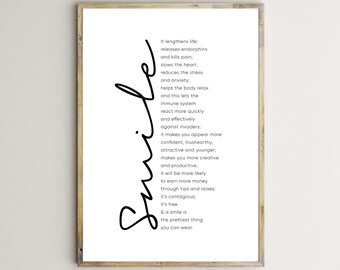 Smile
It lengthens life;
releases endorphins
and kills pain;
slows the heart;
reduces the stress
and anxiety;
helps the body relax
and this lets the
immune system
react more quickly
and effectively
against invaders;
it makes you appear more
confident, trustworthy,
attractive and younger;
makes you more creative
and productive;
it will be more likely
to earn more money
through tips and raises;
it's contagious,
it's free
& a smile is
the prettiest thing
you can wear.